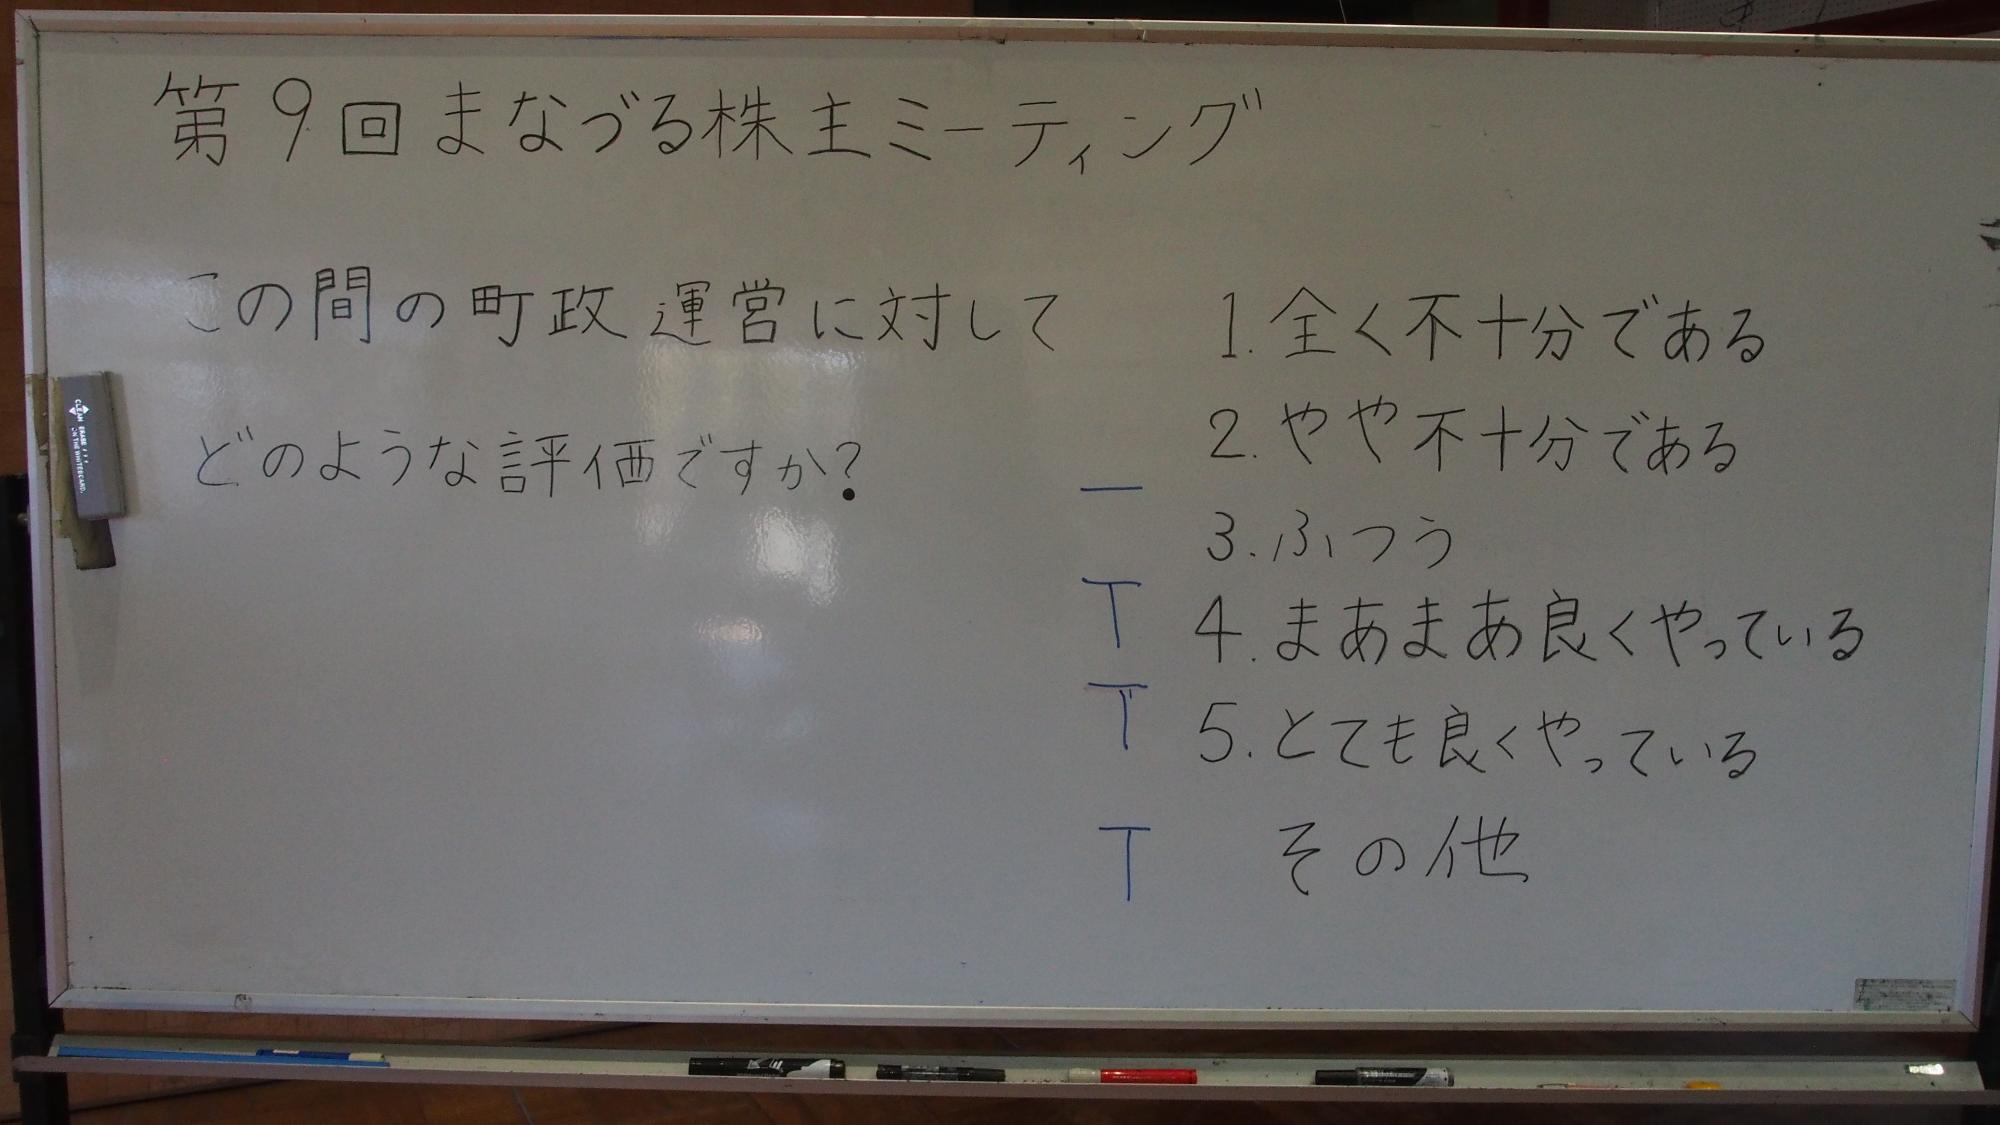 第9回まなづる株主ミーティング
この間の町政運営に対して
どのような評価ですか?
1.全く不十分である
2.やや不十分である
3.ふつう
4.まあまあ良くやっている
5.とても良くやっている
その他
CLEAN ERASER
ON THE WHITEBOARD.